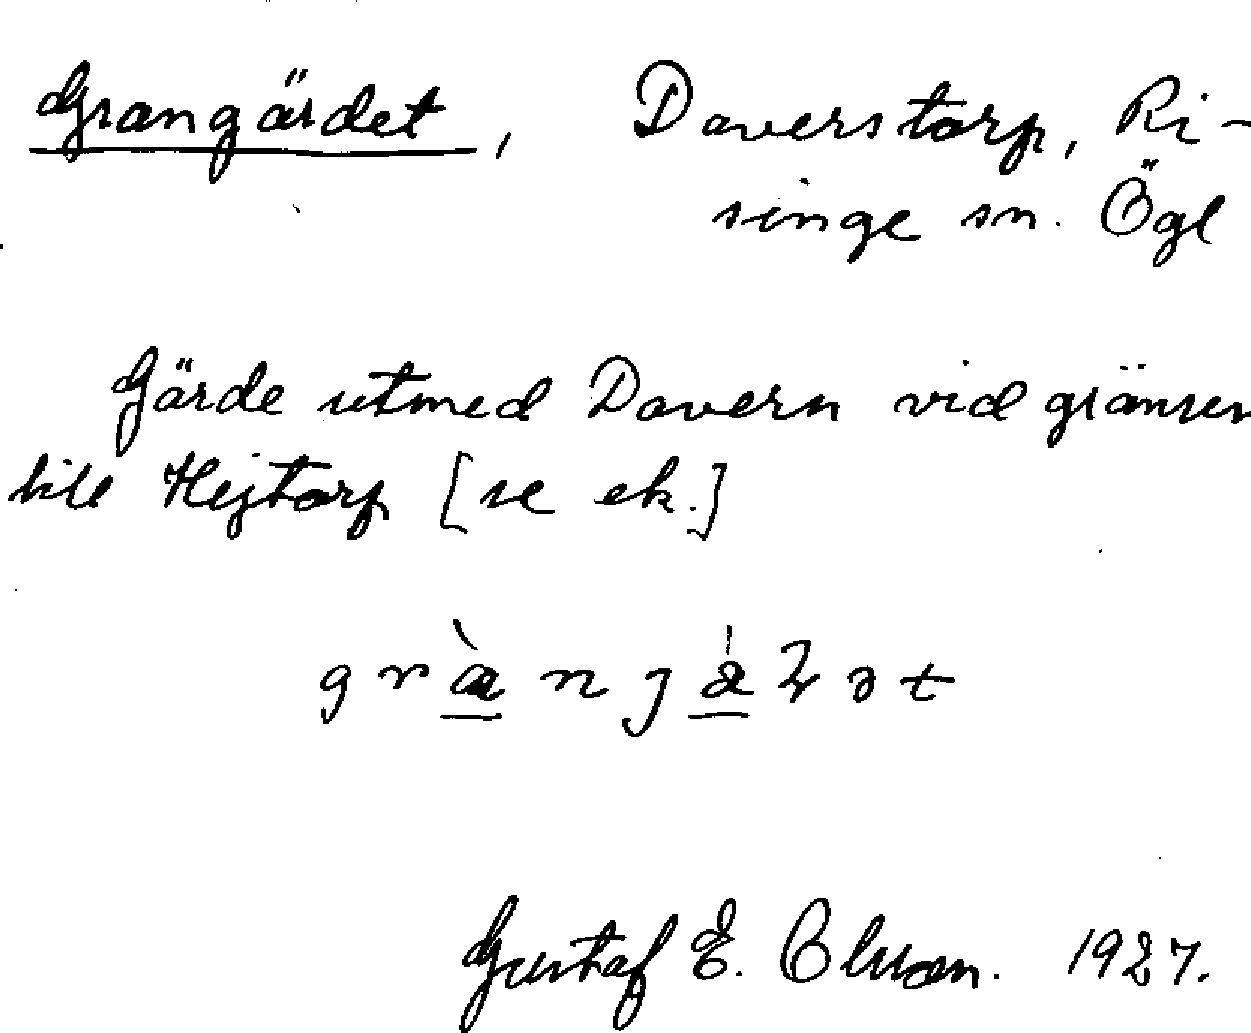 Grangärdet, Daverstorp, Ri-
singe sn. Ögl
Gärde utmed Davern vid gränsen
till Hejtorp [se ek.]
Gustaf E. Olsson. 1927.